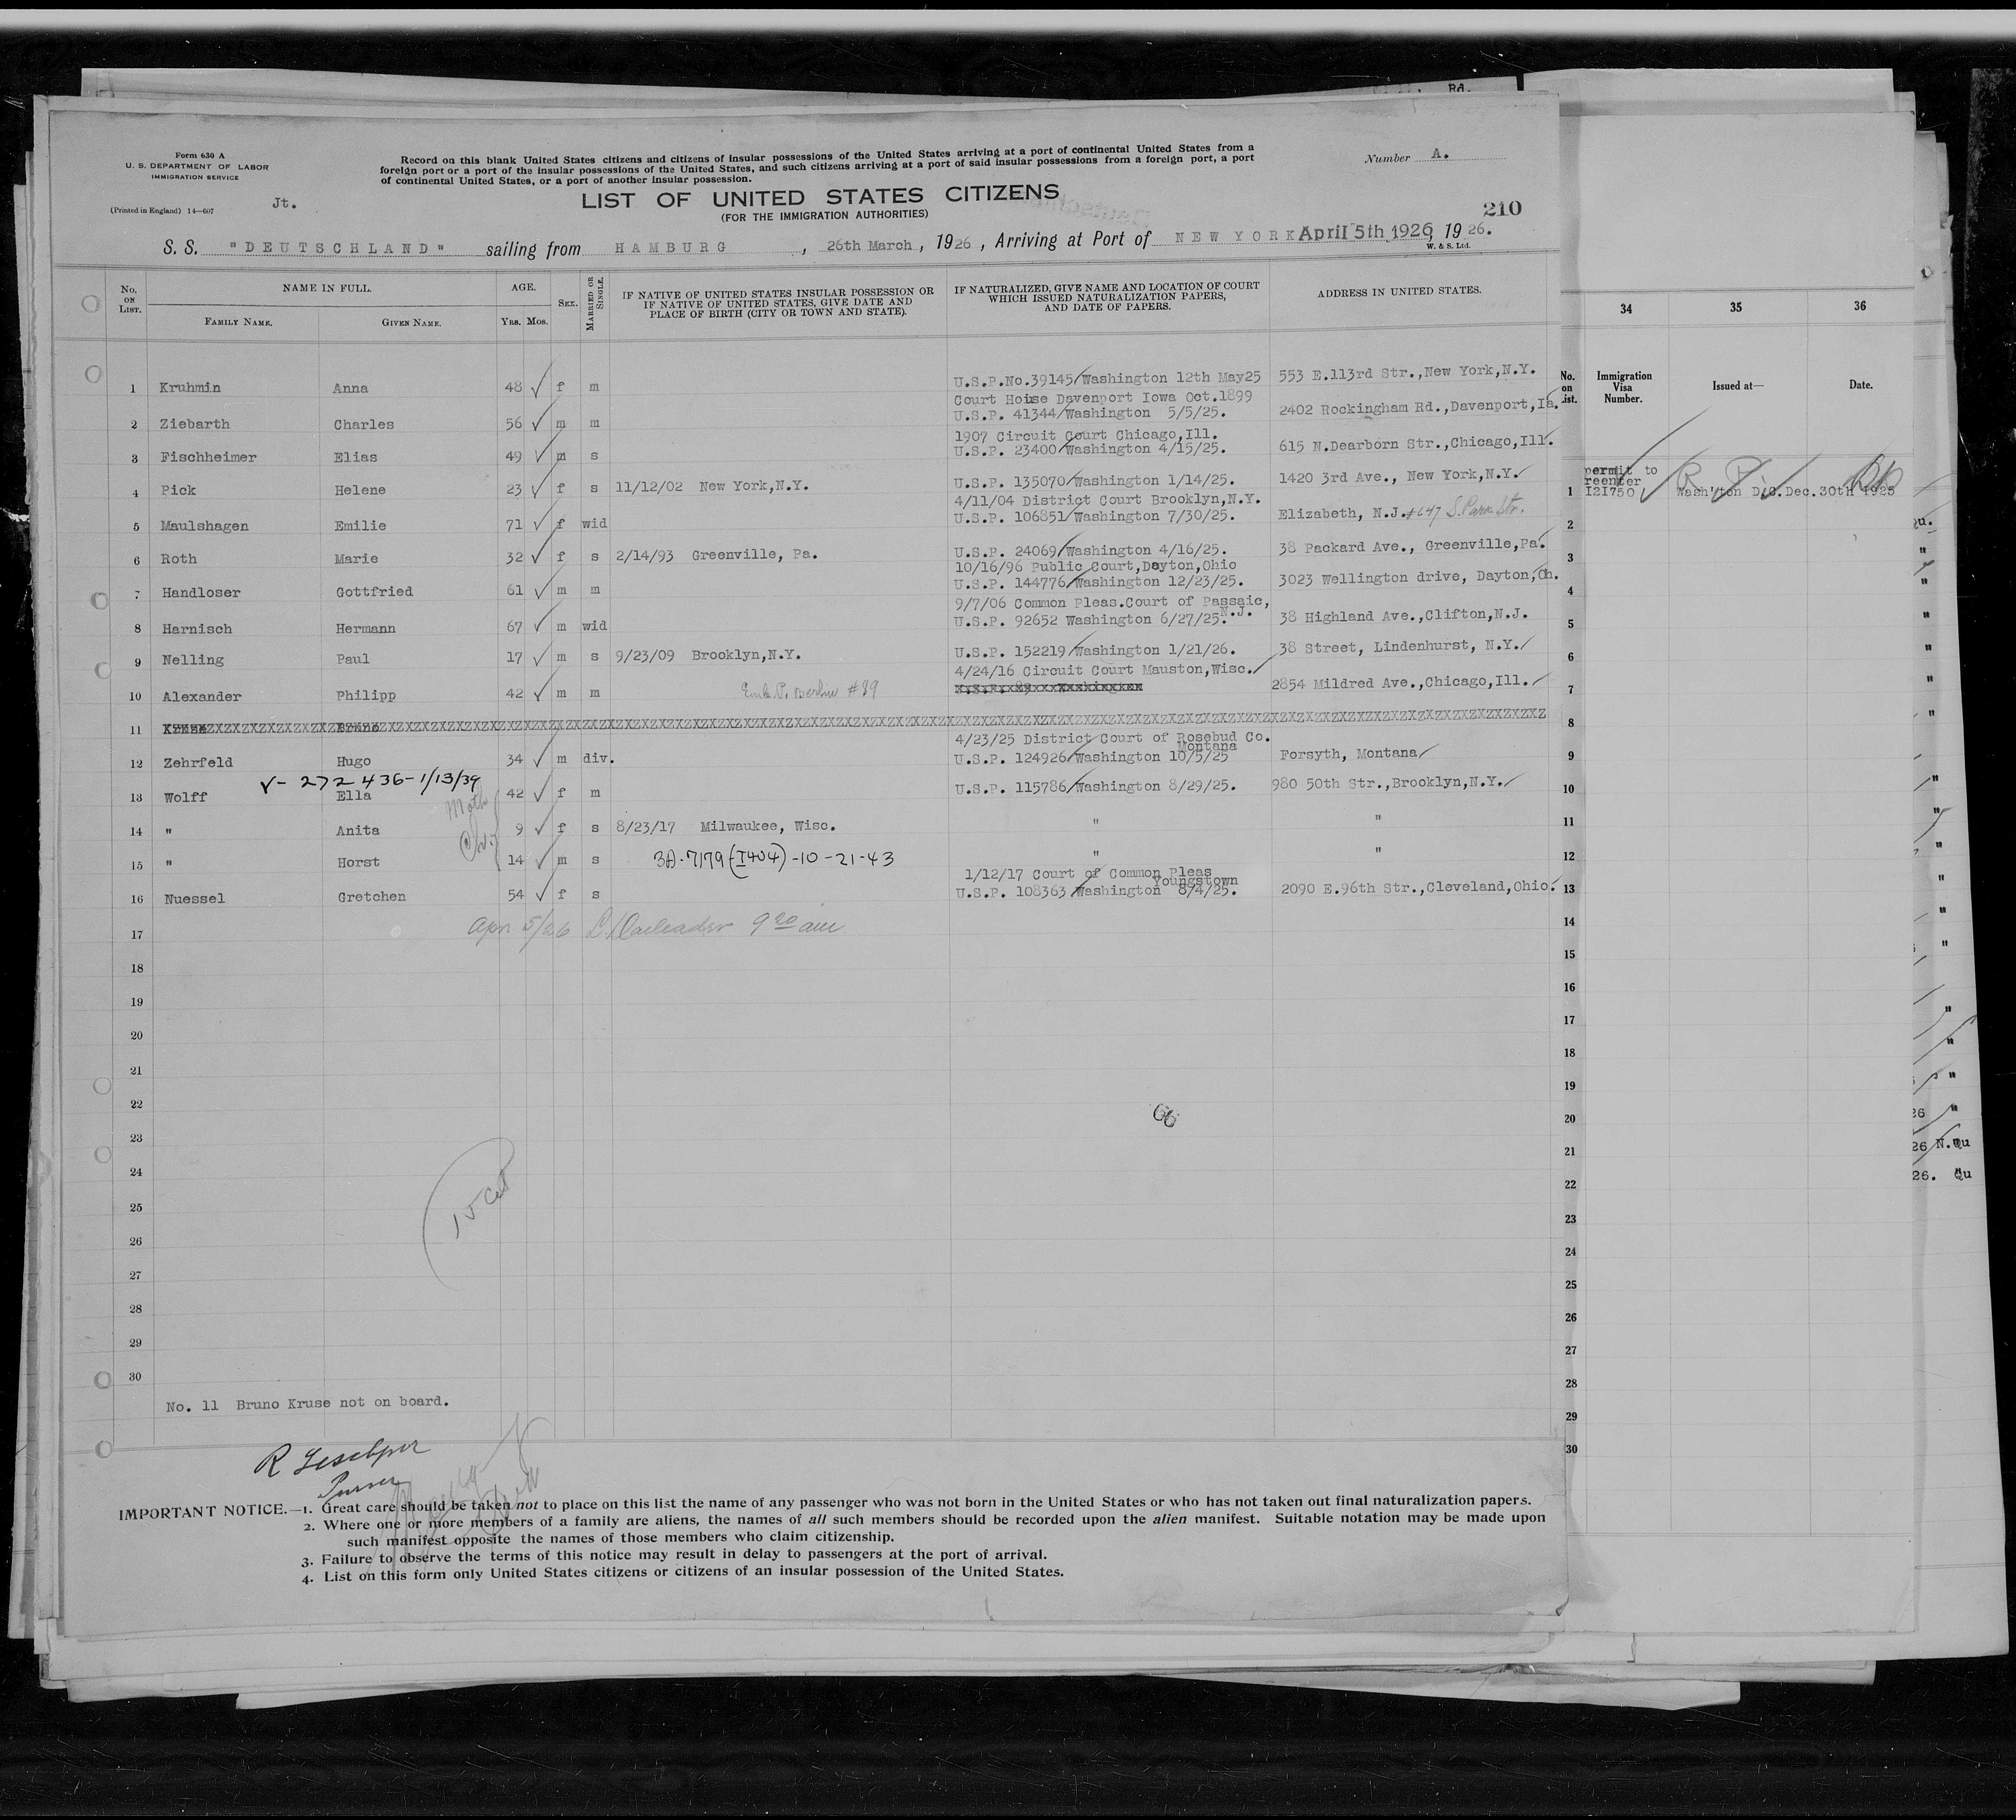 Rd.
Form 630 A
U. S. DEPARTMENT OF LABOR
IMMIGRATION SERVICE
(Printed in England) 14—607
Jt.
Record on this blank United States citizens and citizens of insular possessions of the United States arriving at a port of continental United States from a
foreign port or a port of the insular possessions of the United States, and such citizens arriving at a port of said insular possessions from a foreign port, a port
of continental United States, or a port of another insular possession.
Number A.
LIST OF UNITED STATES CITIZENS
(FOR THE IMMIGRATION AUTHORITIES)
210
S. S. "DEUTSCHLAND" sailing from HAMBURG, 26th March, 1926, Arriving at Port of NEW YORK April 5th 1926, 1926.
W. & S. Ltd.
No. ON LIST. NAME IN FULL. FAMILY NAME. GIVEN NAME. AGE. YRS. MOS. SEX. MARRIED OR SINGLE.
IF NATIVE OF UNITED STATES INSULAR POSSESSION OR
IF NATIVE OF UNITED STATES, GIVE DATE AND
PLACE OF BIRTH (CITY OR TOWN AND STATE).
IF NATURALIZED, GIVE NAME AND LOCATION OF COURT
WHICH ISSUED NATURALIZATION PAPERS,
AND DATE OF PAPERS.
ADDRESS IN UNITED STATES.
1 Kruhmin Anna 48 f m U.S.P.No.39145 Washington 12th May25 553 E.113rd Str.,New York,N.Y.
Court Hoise Davenport Iowa Oct.1899
2 Ziebarth Charles 56 m m U.S.P. 41344 Washington 5/5/25. 2402 Rockingham Rd.,Davenport,Ia.
1907 Circuit Court Chicago,Ill.
3 Fischheimer Elias 49 m s U.S.P. 23400 Washington 4/15/25. 615 N.Dearborn Str.,Chicago,Ill.
4 Pick Helene 23 f s 11/12/02 New York,N.Y. U.S.P. 135070 Washington 1/14/25. 1420 3rd Ave., New York,N.Y.
4/11/04 District Court Brooklyn,N.Y.
5 Maulshagen Emilie 71 f wid U.S.P. 106851 Washington 7/30/25. Elizabeth, N.J. 647 S. Park Str.
6 Roth Marie 32 f s 2/14/93 Greenville, Pa. U.S.P. 24069 Washington 4/16/25. 38 Packard Ave., Greenville,Pa.
10/16/96 Public Court,Dayton,Ohio
7 Handloser Gottfried 61 m m U.S.P. 144776 Washington 12/23/25. 3023 Wellington drive, Dayton,Oh.
9/7/06 Common Pleas.Court of Passaic,
N.J.
8 Harnisch Hermann 67 m wid U.S.P. 92652 Washington 6/27/25. 38 Highland Ave.,Clifton,N.J.
9 Nelling Paul 17 m s 9/23/09 Brooklyn,N.Y. U.S.P. 152219 Washington 1/21/26. 38 Street, Lindenhurst, N.Y.
4/24/16 Circuit Court Mauston,Wisc.
10 Alexander Philipp 42 m m Emb. P. Berlin #89 2854 Mildred Ave.,Chicago,Ill.
11
4/23/25 District Court of Rosebud Co.
Montana
12 Zehrfeld Hugo 34 m div. U.S.P. 124926 Washington 10/5/25 Forsyth, Montana
V- 272436-1/13/39
13 Wolff Ella 42 f m U.S.P. 115786 Washington 8/29/25. 980 50th Str.,Brooklyn,N.Y.
14 " Anita 9 f s 8/23/17 Milwaukee, Wisc. " "
15 " Horst 14 m s 3A-7179 (I404)-10-21-43 " "
1/12/17 Court of Common Pleas
Youngstown
16 Nuessel Gretchen 54 f s U.S.P. 108363 Washington 8/4/25. 2090 E.96th Str.,Cleveland,Ohio.
17 Apr 5/26 9 20 am
18
19
20
21
22
23
24
25
26
27
28
29
30
66
15 Cit
No. 11 Bruno Kruse not on board.
Purser
IMPORTANT NOTICE.—1. Great care should be taken not to place on this list the name of any passenger who was not born in the United States or who has not taken out final naturalization papers.
2. Where one or more members of a family are aliens, the names of all such members should be recorded upon the alien manifest. Suitable notation may be made upon
such manifest opposite the names of those members who claim citizenship.
3. Failure to observe the terms of this notice may result in delay to passengers at the port of arrival.
4. List on this form only United States citizens or citizens of an insular possession of the United States.
34 35 36
No. on List. Immigration Visa Number. Issued at— Date.
permit to
reenter
1 121750 Wash'ton D.C. Dec.30th 1925
2
3
4
5
6
7
8
9
10
11
12
13
14
15
16
17
18
19
20
21
22
23
24
25
26
27
28
29
30
26 "
26 N.Qu
26. Qu